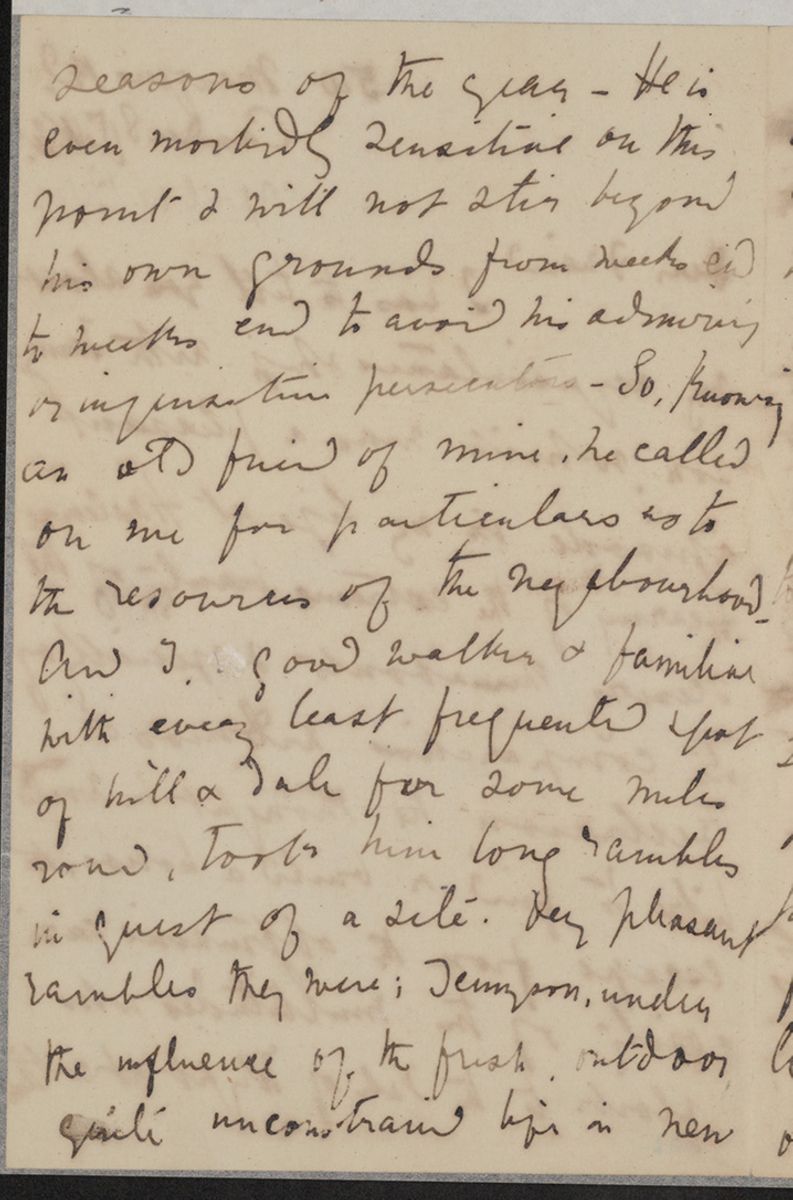 seasons of the year – He is
even morbidly sensitive on this
point & will not stir beyond
his own grounds from weeks end
to weeks end to avoid his admiring
or inquisitive persecutors – So, knowing
an old friend of mine, he called
on me for particulars as to
the resources of the neighbourhood.
And I, good walker & familiar
with every least frequented spot
of hill & dale for some miles
round, took him long rambles
in quest of a site. Very pleasant
rambles they were; Tennyson, under
the influence of the fresh, outdoor,
quite unconstrained life in new